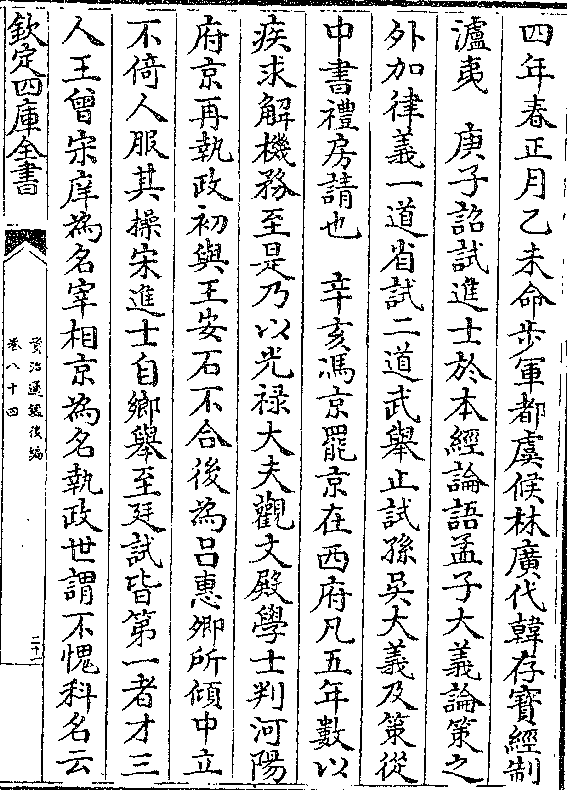 四年春正月乙未命步軍都虞候林廣代韓存寶經制
瀘夷　庚子詔試進士於本經論語孟子大義論策之
外加律義一道省試二道武舉止試孫吳大義及策從
中書禮房請也　辛亥馮京罷京在西府凡五年數以
疾求解機務至是乃以光祿大夫觀文殿學士判河陽
府京再執政初與王安石不合後為吕惠卿所傾中立
不倚人服其操宋進士自鄉舉至廷試皆第一者才三
人王曾宋庠為名宰相京為名執政世謂不愧科名云
欽定四庫全書
資治通鑑後編
卷八十四
二十一